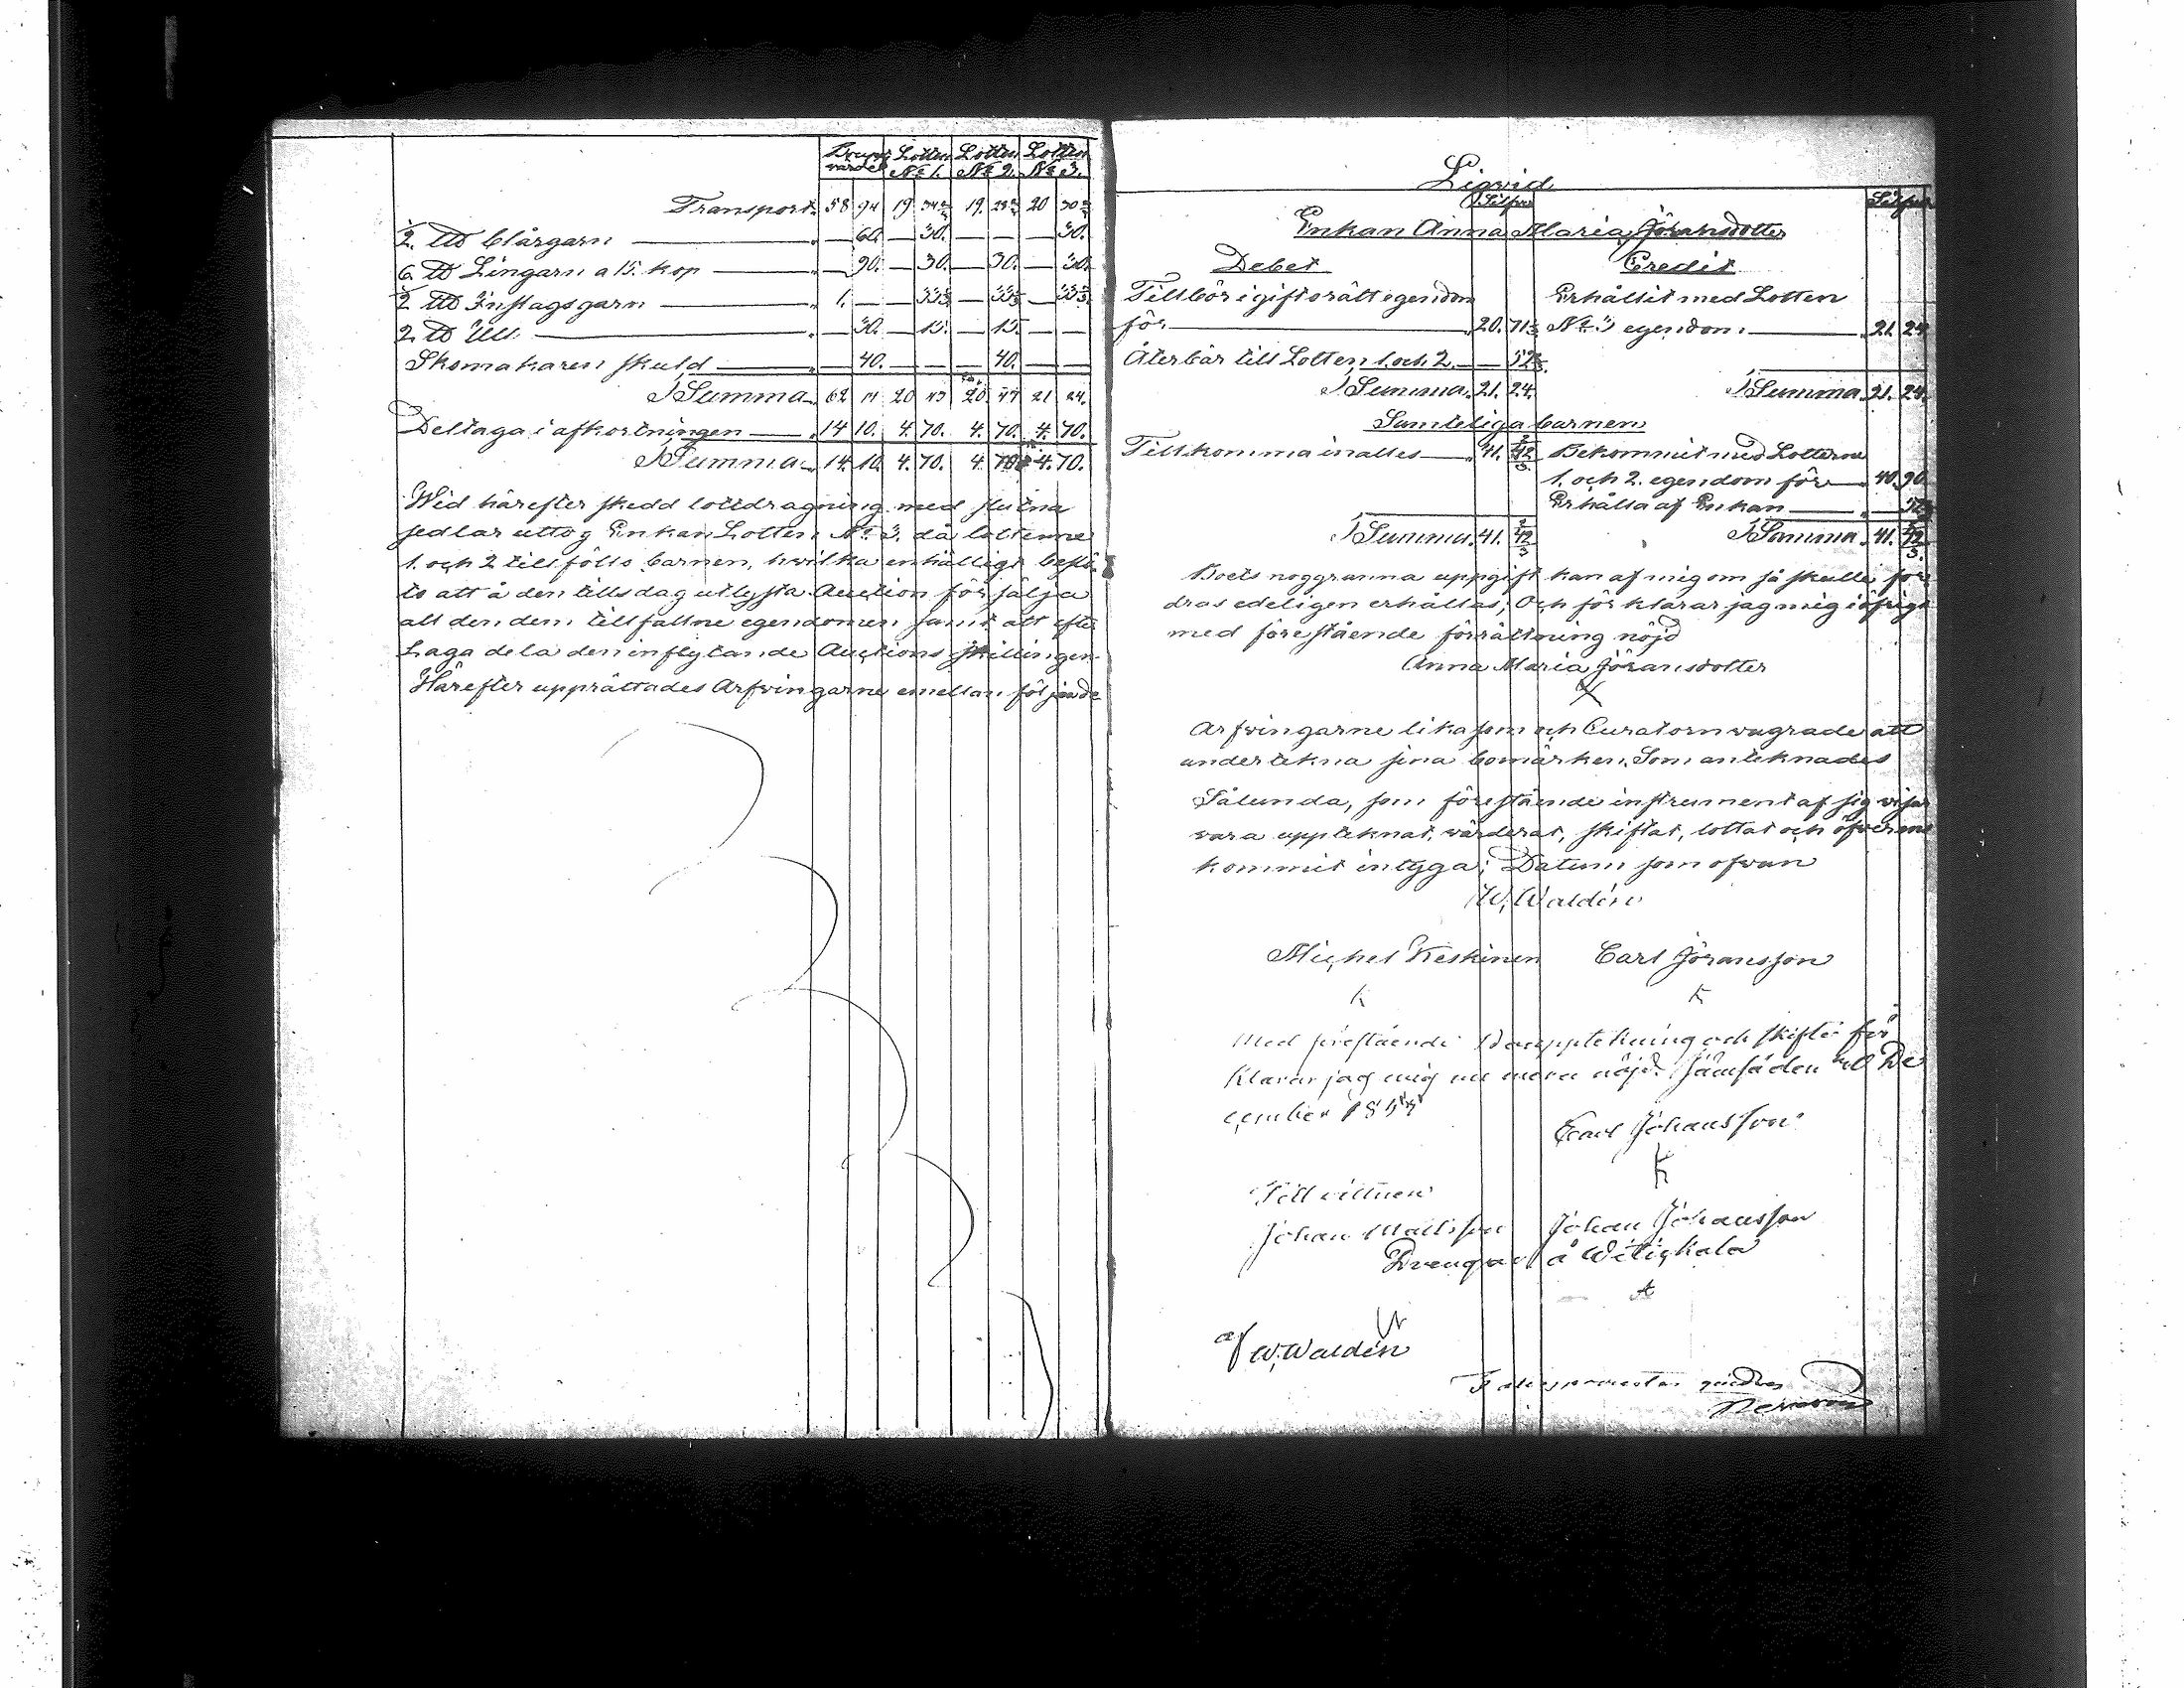 Lotten Lotten Lotten
värdet No 1. No 2. No 3.
Transport. 58 94 19 20
2. ℔ blårgarn — 60. — 30. — — — 30.
6. ℔ Lingarn a 15. kop — 90. — 30. — 30. — 30.
2 ℔ Inslagsgarn 1. — — 33⅓ — 33⅓ — 33⅓
2. ℔ Ull — 30. — 15. — 15. — —
Skomakaren skuld — 40. — — — 40. — —
Summa 62 14 20 43 20. 47 21 24.
Deltaga i afkortningen 14 10. 4. 70. 4. 70. 4. 70.
Summa 14. 10. 4. 70. 4. 70. 4. 70.
Wid härefter skedd lottdragning med slutna
sedlar uttog Enkan Lotten No 3. då lotterne
1. och 2 tillföllo barnen, hwilka enhälligt beslö
to att å den tills dag utlysta Auction försälja
all den dem tillfallne egendomen samt att efter
Laga dela den inflytande Auctions skillingen.
Härefter upprättades Arfvingarne emellan följande
Liqvid
Silfver Silfver
Enkan Anna Maria Jöransdotter
Debet Credit
Tillbör i giftorätt egendom Erhållit med Lotten
för 20. 71⅓ No 3 egendom 21. 24
Återbär till Lotten 1. och 2. — 52⅔.
Summa. 21. 24. Summa 21. 24.
Samteliga barnen
Tillkomma inalles 41. 42⅔ Bekommit med Lotterne
1. och 2. egendom för 40. 90.
Erhålla af Enkan — 52⅔
Summa. 41. 42⅔ Summa. 41. 42⅔.
Boets noggranna uppgift kan af mig om så skulle for
dras edeligen erhållas; Och förklarar jag mig iöfrigt
med förestående förrättning nöjd
Anna Maria Jöransdotter
X
Arfvingarne lika som och Curatorn wägrade att
underteckna sina bomärken. Som antecknades
Sålunda, som förestående instrument af sig visar
vara upptecknat, wärderat, skiftat, lottat och öfverens
kommit intyga; Datum som ofvan
W. Waldén
Michel Keskinen Carl Jöransson
K K
Med förestående Bouppteckning och skifte för
klarar jag mig nu mera nöjd. Jämsä den De
cember 18
Carl Johansson
K
Till vittnen
Johan Mattsson Johan Johansson
Drengar å Witiskala
A
af W. Waldén